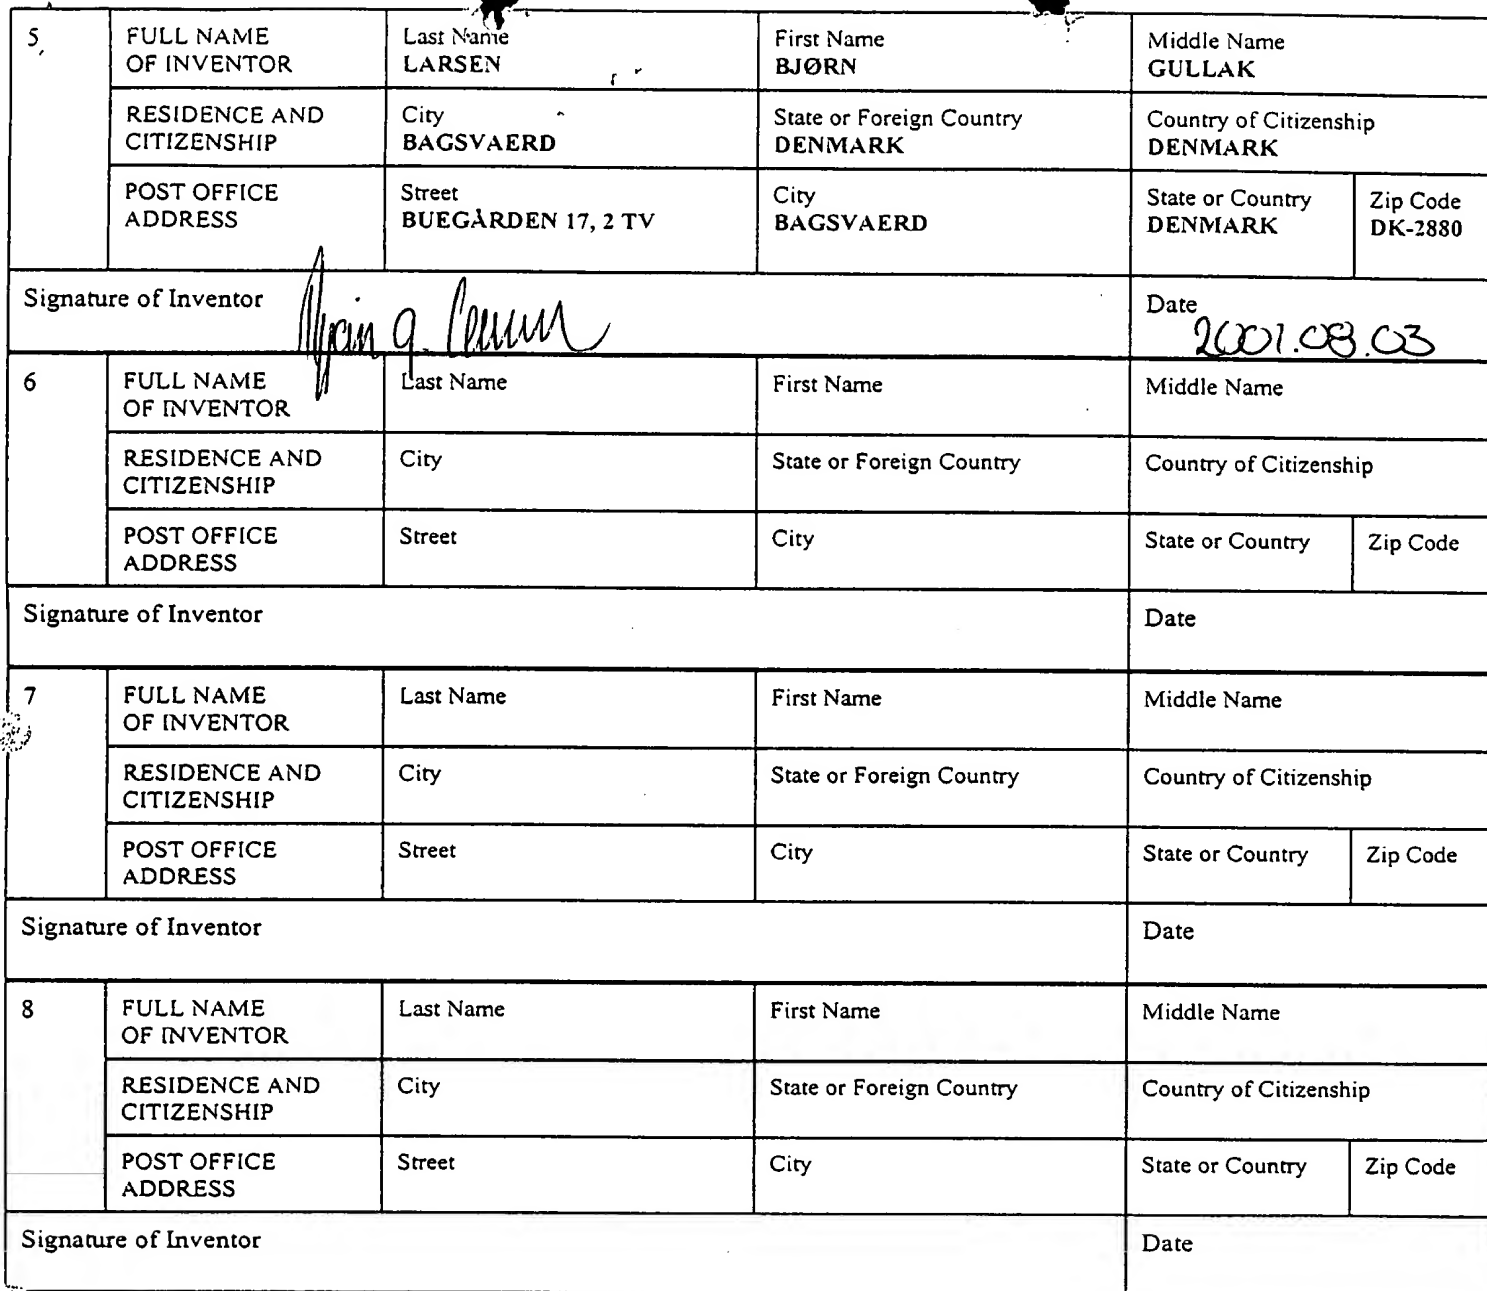 5
FULL NAME OF INVENTOR
Last Name
LARSEN
First Name
BJØRN
Middle Name
GULLAK
RESIDENCE AND CITIZENSHIP
City
BAGSVAERD
State or Foreign Country
DENMARK
Country of Citizenship
DENMARK
POST OFFICE ADDRESS
Street
BUEGÅRDEN 17, 2 TV
City
BAGSVAERD
State or Country
DENMARK
Zip Code
DK-2880
Signature of Inventor
Date
2001.08.03
6
FULL NAME OF INVENTOR
Last Name
First Name
Middle Name
RESIDENCE AND CITIZENSHIP
City
State or Foreign Country
Country of Citizenship
POST OFFICE ADDRESS
Street
City
State or Country
Zip Code
Signature of Inventor
Date
7
FULL NAME OF INVENTOR
Last Name
First Name
Middle Name
RESIDENCE AND CITIZENSHIP
City
State or Foreign Country
Country of Citizenship
POST OFFICE ADDRESS
Street
City
State or Country
Zip Code
Signature of Inventor
Date
8
FULL NAME OF INVENTOR
Last Name
First Name
Middle Name
RESIDENCE AND CITIZENSHIP
City
State or Foreign Country
Country of Citizenship
POST OFFICE ADDRESS
Street
City
State or Country
Zip Code
Signature of Inventor
Date